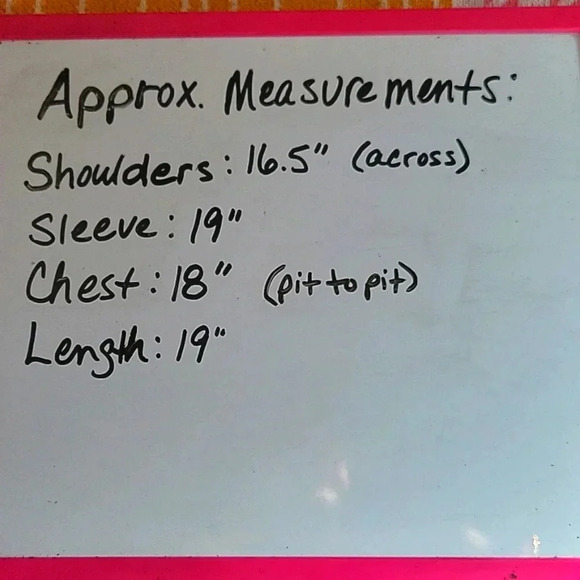 Approx. Measurements:
Shoulders: 16.5" (across)
Sleeve: 19"
Chest: 18" (pit to pit)
Length: 19"